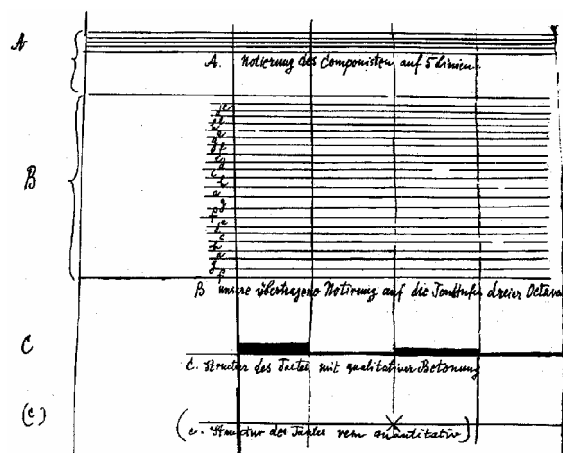 A
A. Notierung des Componisten auf 5 Linien
B
B unsere übertragene Notirung auf die Tonstufen dreier Octava
C
C. Structur des Tactes mit qualitativer Betonung
(c)
(c. Structur des Tactes rein quantitativ)